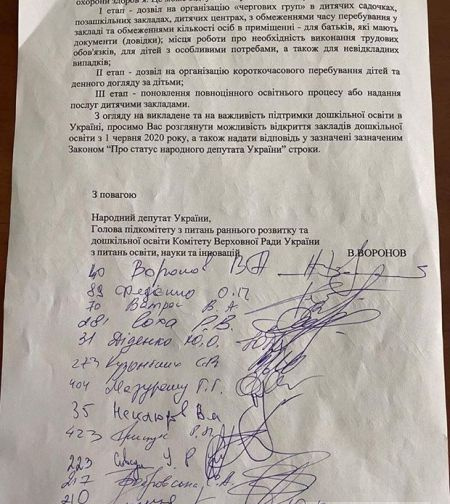 охорони здоров'я.
І етап - дозвіл на організацію «чергових груп» в дитячих садочках,
позашкільних закладах, дитячих центрах, з обмеженнями часу перебування у
закладі та обмеженнями кількості осіб в приміщенні - для батьків, які мають
документи (довідки); місця роботи про необхідність виконання трудових
обов'язків, для дітей з особливими потребами, а також для невідкладних
випадків;
ІІ етап - дозвіл на організацію короткочасового перебування дітей та
денного догляду за дітьми;
ІІІ етап - поновлення повноцінного освітнього процесу або надання
послуг дитячими закладами.
З огляду на викладене та на важливість підтримки дошкільної освіти в
Україні, просимо Вас розглянути можливість відкриття закладів дошкільної
освіти з 1 червня 2020 року, а також надати відповідь у зазначені зазначеним
Законом “Про статус народного депутата України” строки.
З повагою
Народний депутат України,
Голова підкомітету з питань раннього розвитку та
дошкільної освіти Комітету Верховної Ради України
з питань освіти, науки та інновацій
В.ВОРОНОВ
40 Воронов В А
89 О.П
70 В. А
281 Р.В.
31 Діденко Ю.О.
273
404 Мазурашу Г.Г.
35 Неклюдов В.М
423 Р.П
223 У Р
217
210